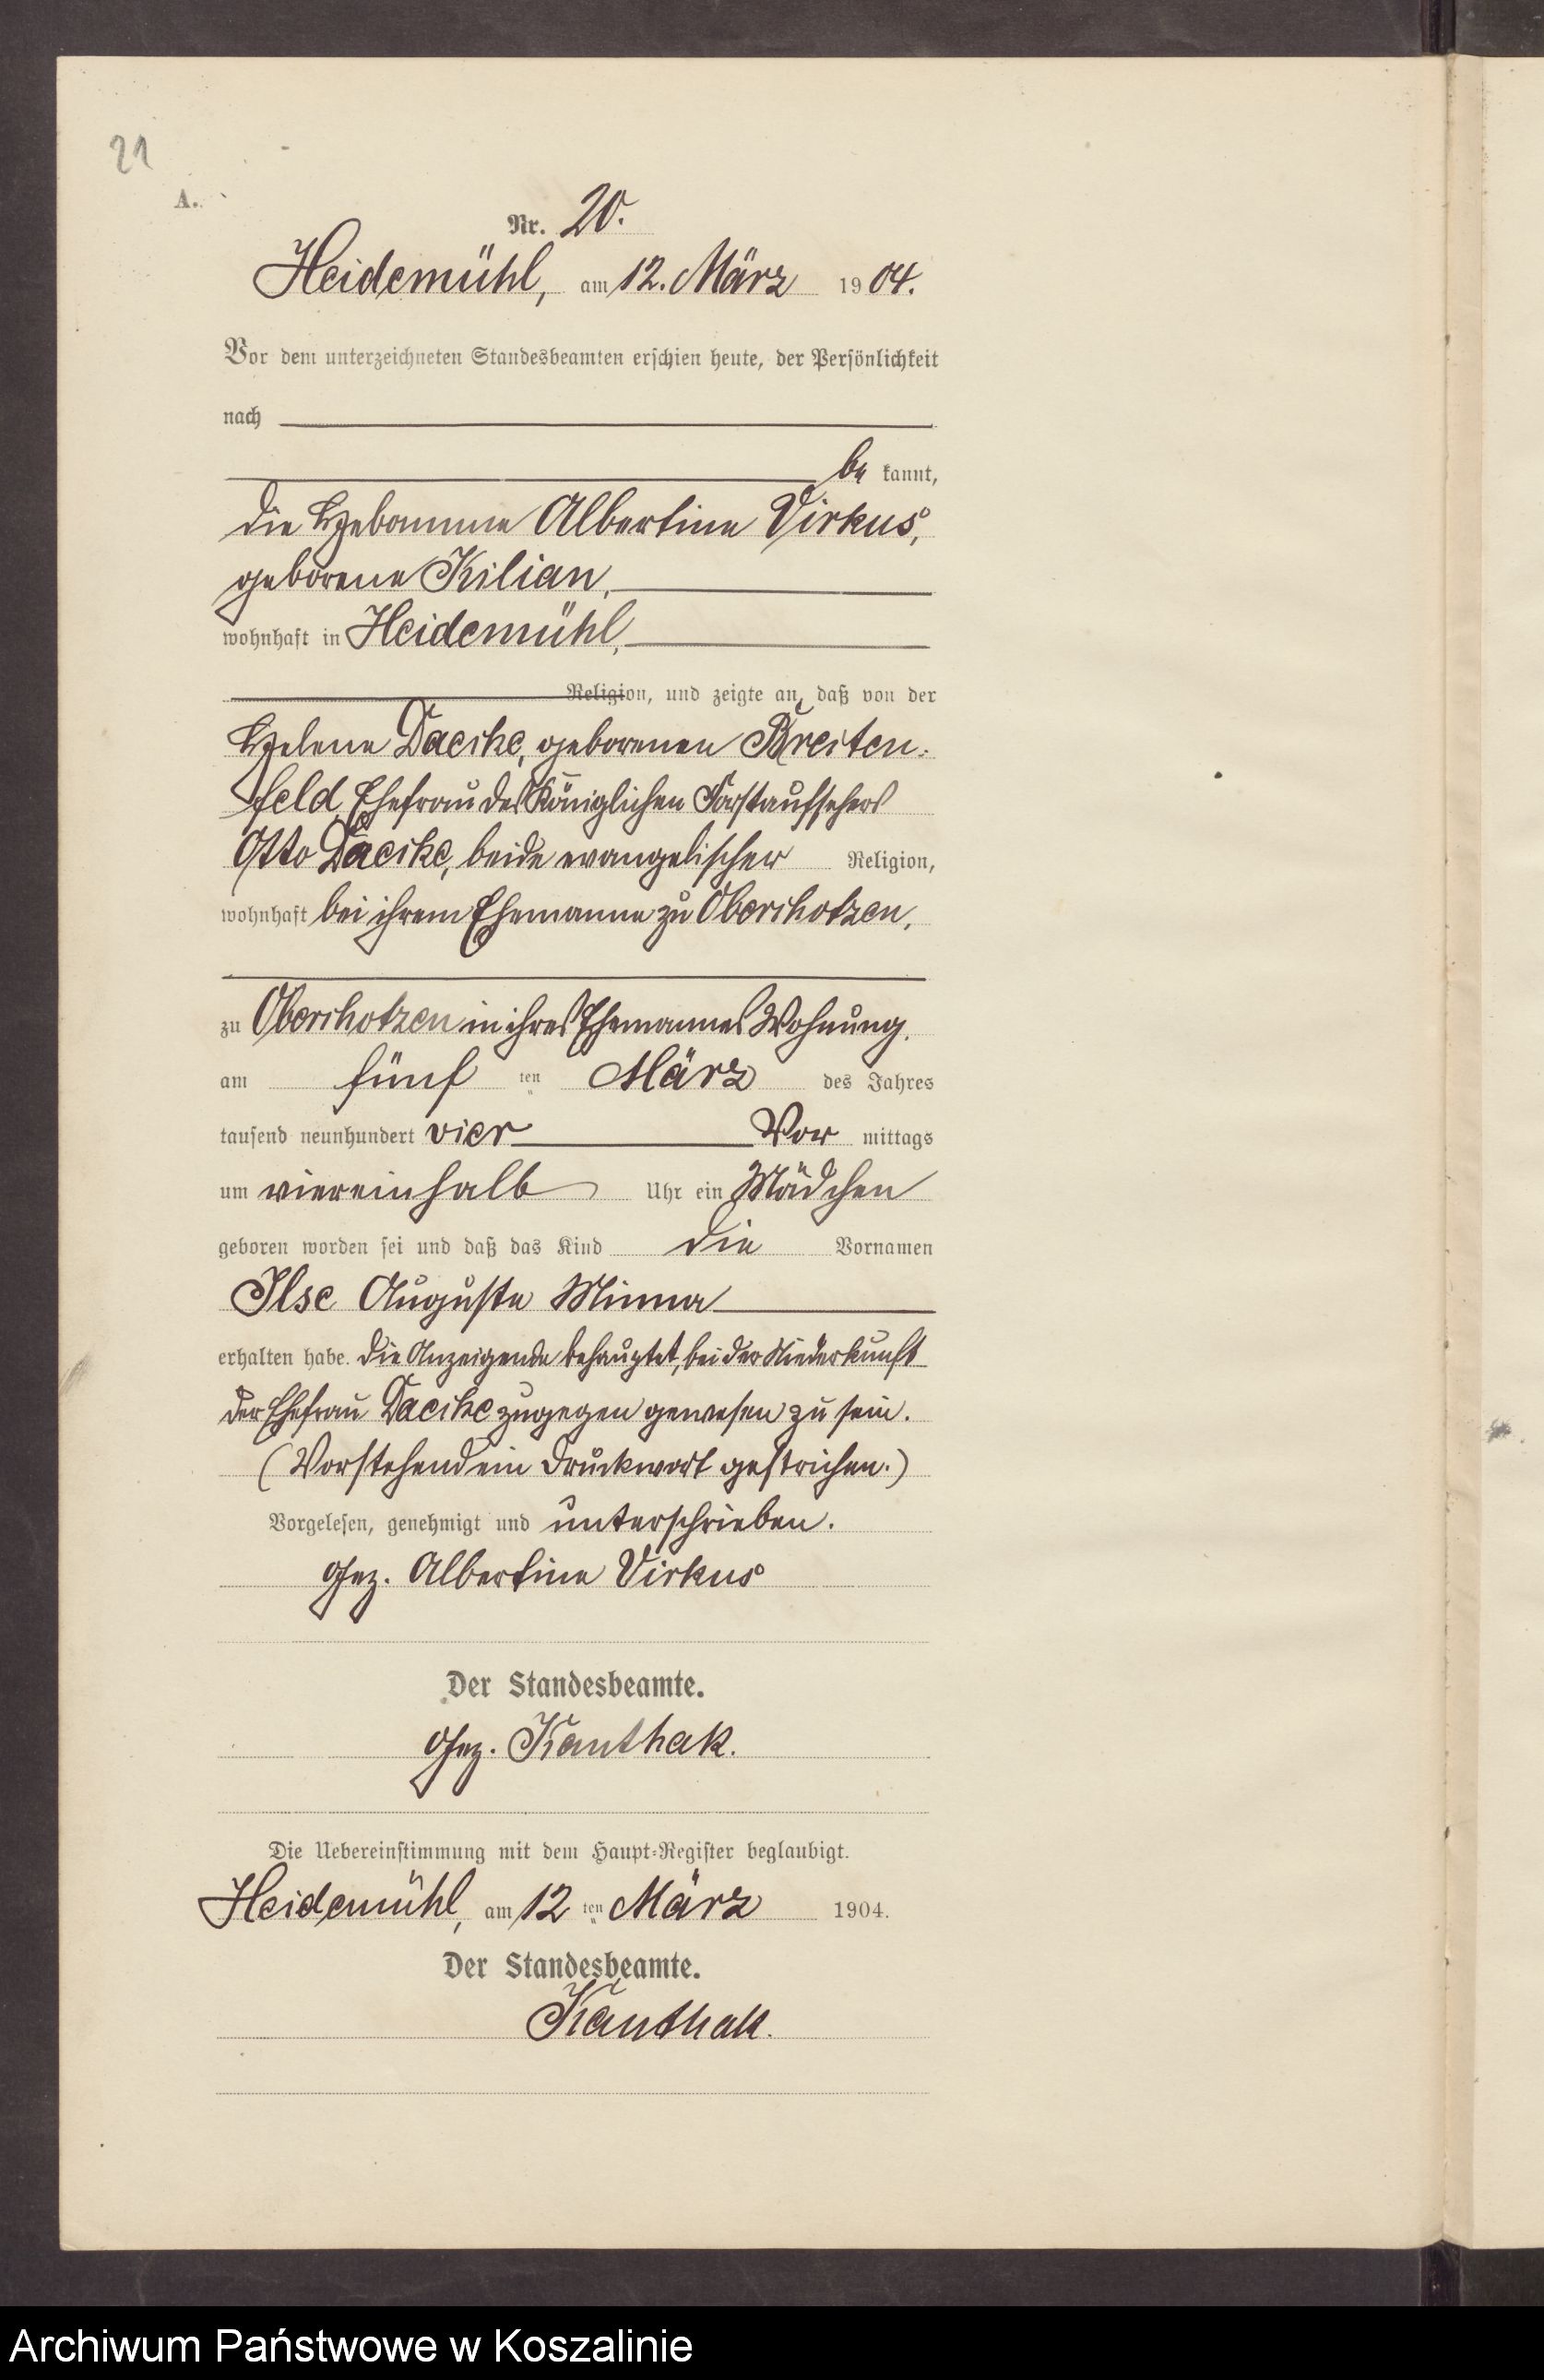 21
A.
Nr. 20.
Heidemühl, am 12. März 1904.
Vor dem unterzeichneten Standesbeamten erschien heute, der Persönlichkeit
nach
be kannt,
die Hebamme Albertine Virkus,
geborene Kilian,
wohnhaft in Heidemühl,
Religion, und zeigte an, daß von der
Helene Daeske, geborenen Breiten-
feld, Ehefrau des Königlichen Forstaufsehers
Otto Daeske, beide evangelischer Religion,
wohnhaft bei ihrem Ehemanne zu Oberchotzen,
zu Oberchotzen in ihres Ehemannes Wohnung,
am fünf ten März des Jahres
tausend neunhundert vier Vor mittags
um viereinhalb Uhr ein Mädchen
geboren worden sei und daß das Kind die Vornamen
Ilse Auguste Minna
erhalten habe. Die Anzeigende behauptet, bei der Niederkunft
der Ehefrau Daeske zugegen gewesen zu sein.
(Vorstehend ein Druckwort gestrichen.)
Vorgelesen, genehmigt und unterschrieben.
Gez. Albertine Virkus
Der Standesbeamte.
Gez. Kanthak.
Die Uebereinstimmung mit dem Haupt-Register beglaubigt.
Heidemühl, am 12 ten März 1904.
Der Standesbeamte.
Kanthak.
Archiwum Państwowe w Koszalinie